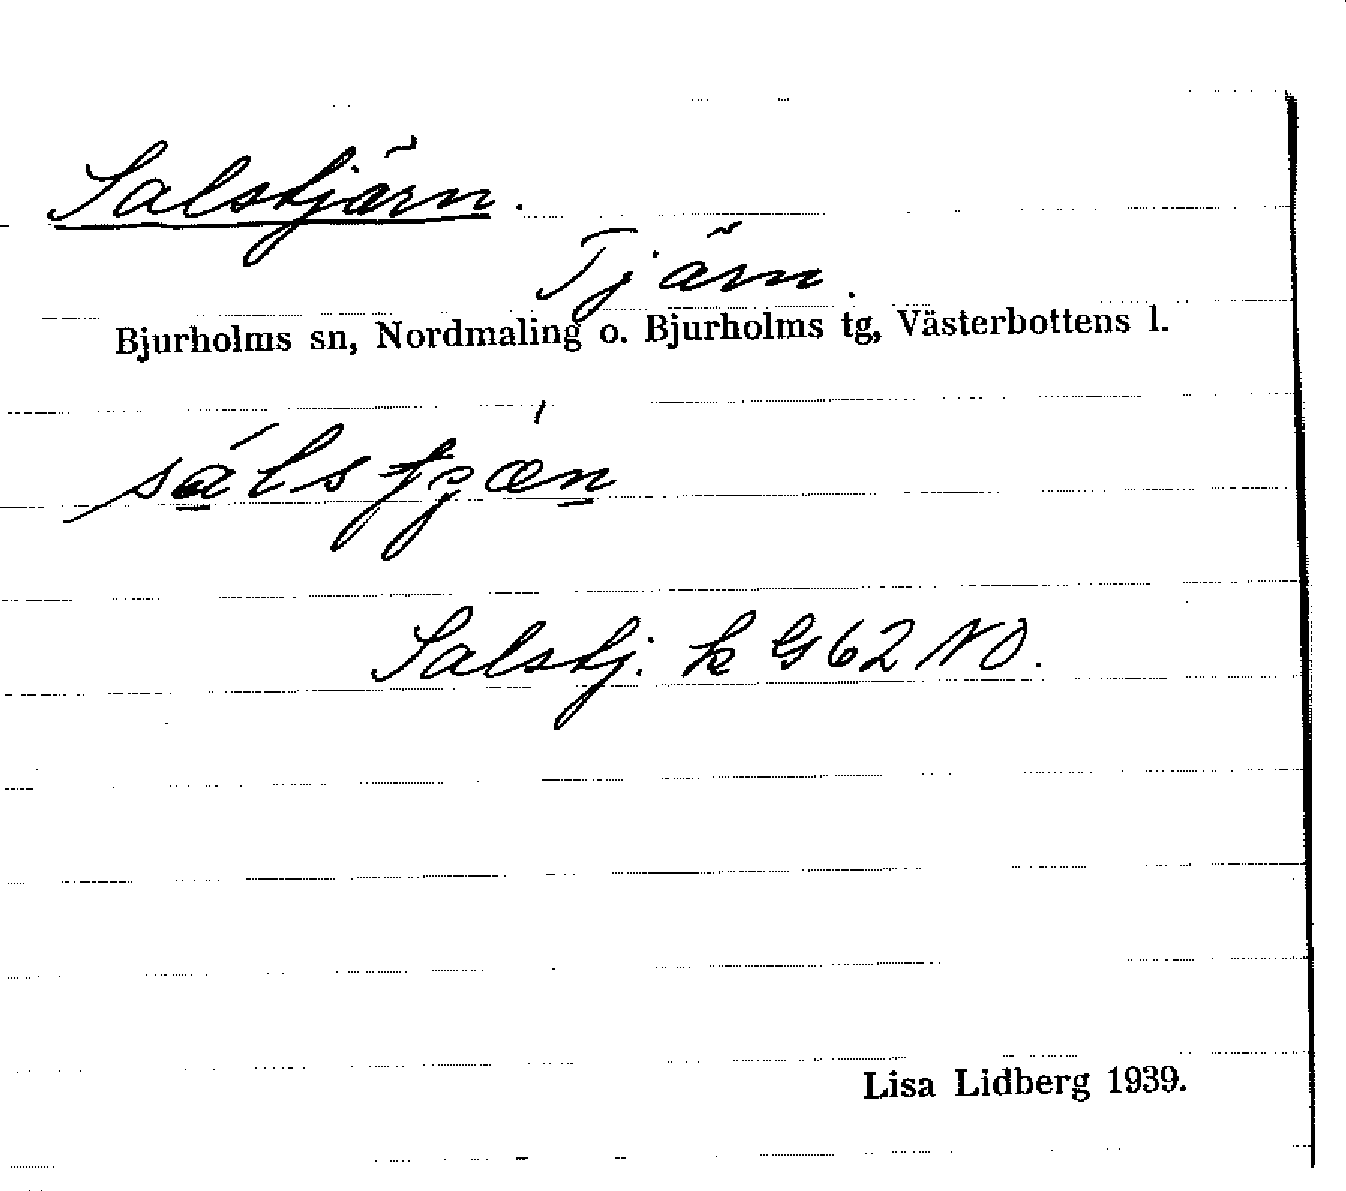 Salstjärn.
Tjärn.
Bjurholms sn, Nordmaling o. Bjurholms tg, Västerbottens l.
Salstj. k G 62 NO.
Lisa Lidberg 1939.